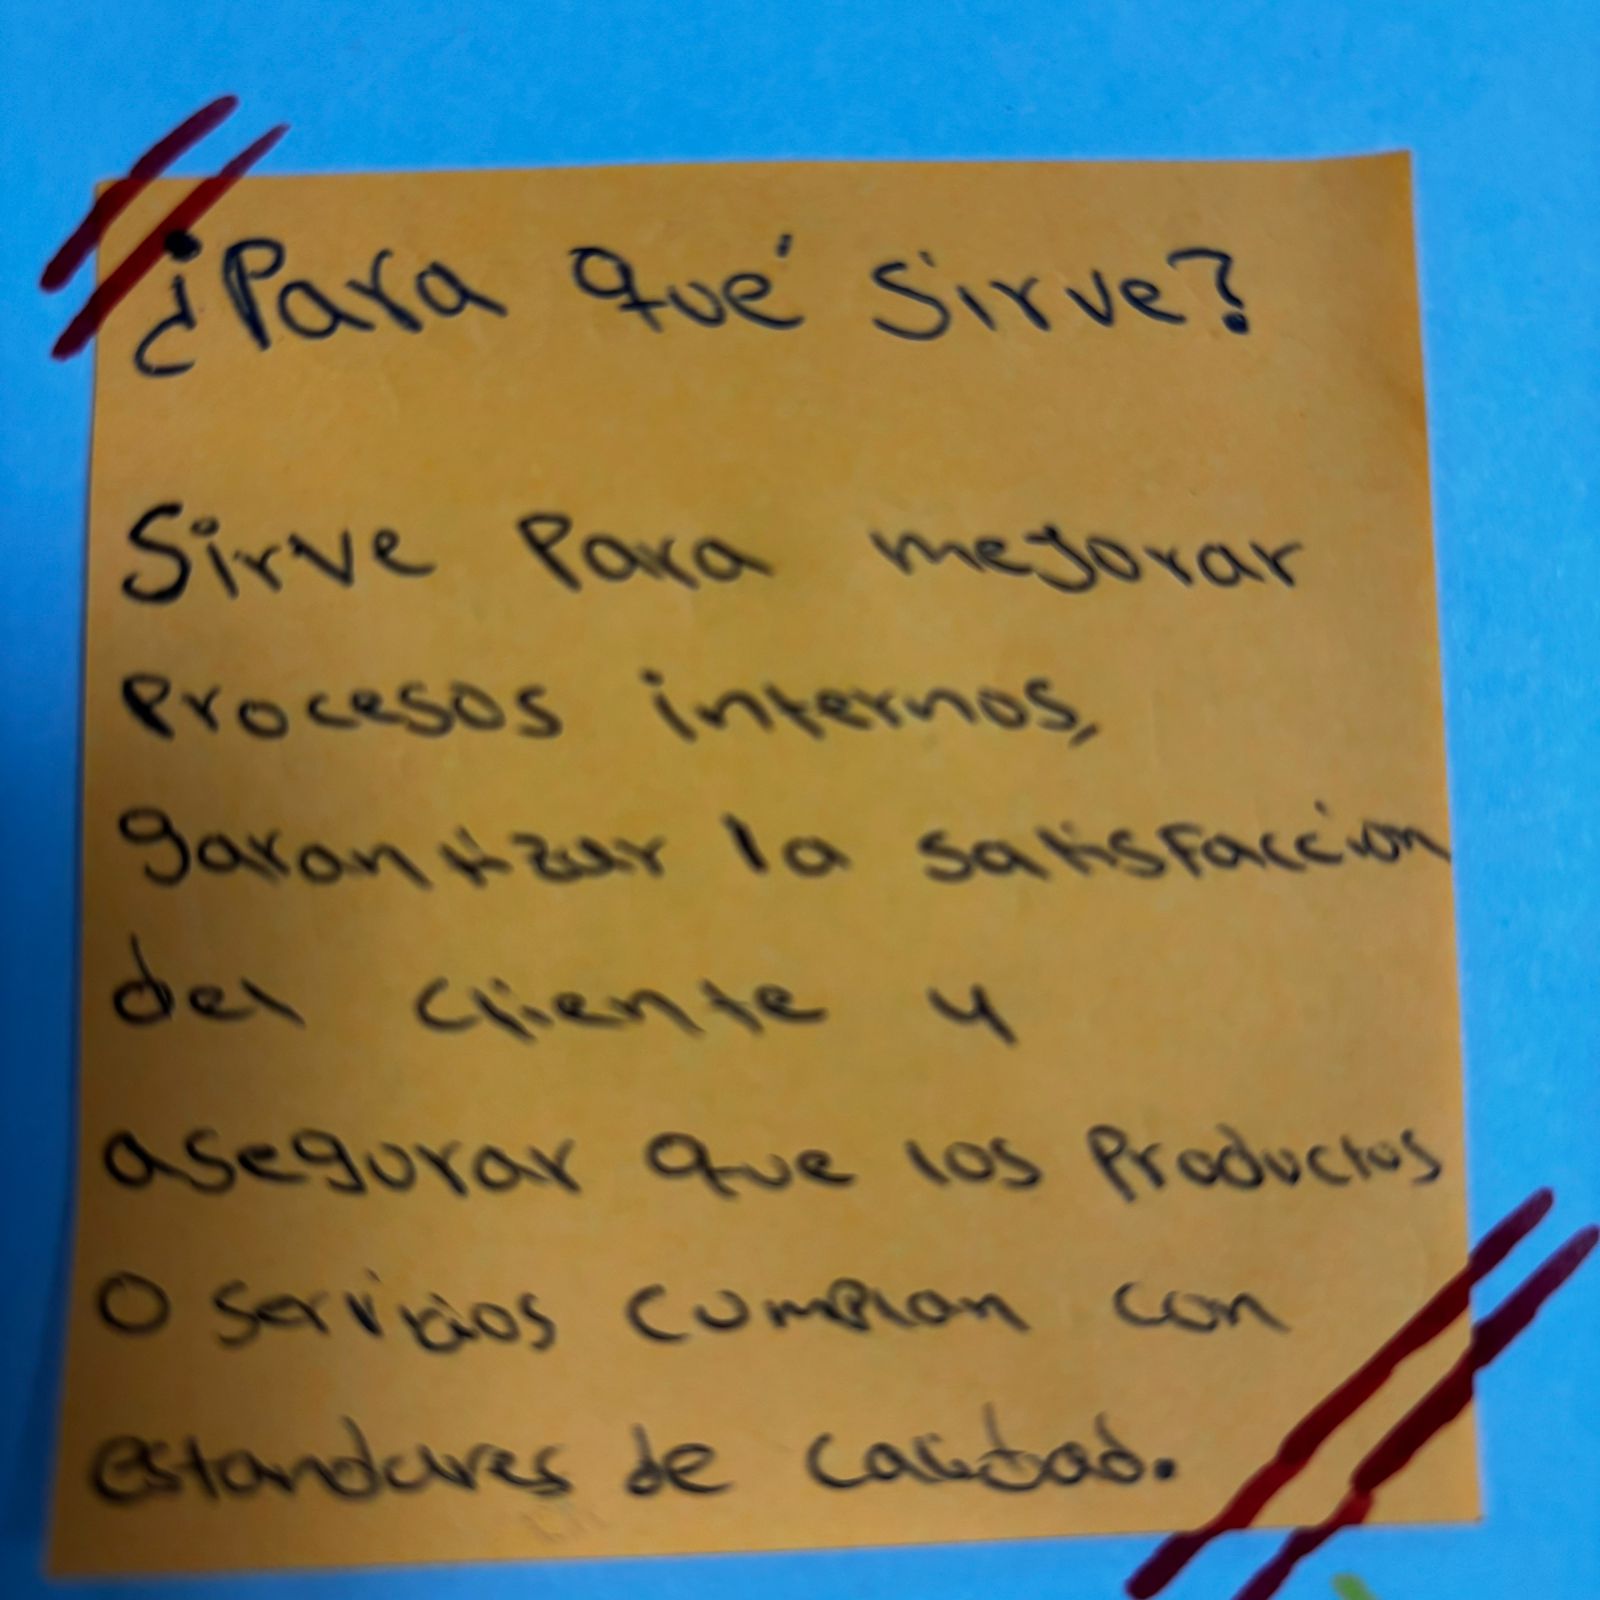 ¿Para qué sirve?
Sirve para mejorar
procesos internos,
garantizar la satisfacción
del cliente y
asegurar que los productos
o servicios cumplan con
estandares de calidad.